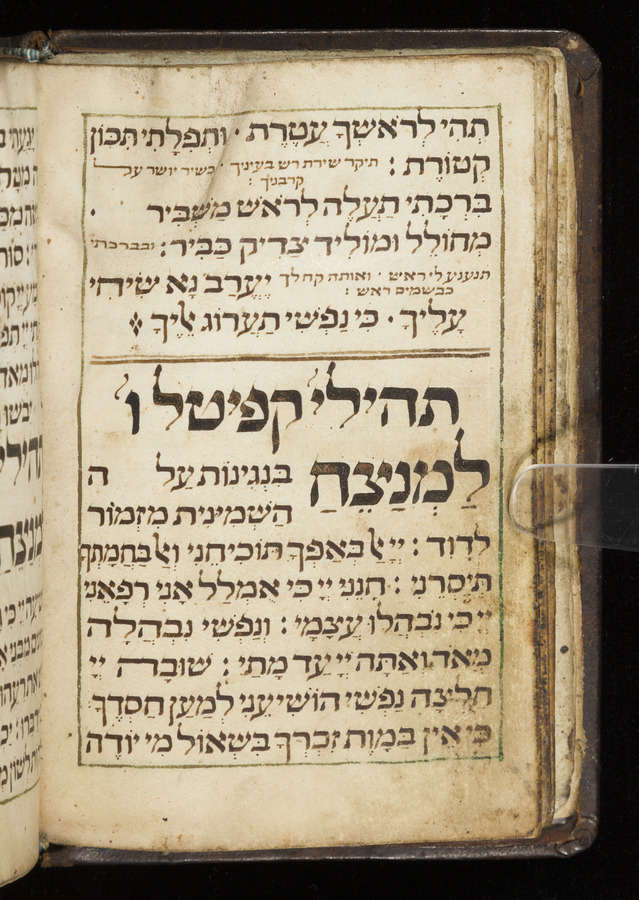 תְּהִי לְרֹאשְׁךָ עֲטֶרֶת · וּתְפִלָּתִי תִּכּוֹן
קְטוֹרֶת : תיקר שירת רש בעיניך · כשיר יושר על
קרבניך :
בִּרְכָתִי תַעֲלֶה לְרֹאשׁ מַשְׁבִּיר ·
מְחוֹלֵל וּמוֹלִיד צַדִּיק כַּבִּיר : ובברכתי
תנענע לי ראש · ואותה קח לך יֶעֱרַב נָא שִׂיחִי
כבשמים ראש :
עָלֶיךָ · כִּי נַפְשִׁי תַעֲרוֹג אֵלֶיךָ
תהילי קפיטל ו
לַמְנַצֵּחַ בִּנְגִינוֹת עַל ה
הַשְּׁמִינִית מִזְמוֹר
לְדָוִד : יְיָ אַל בְּאַפְּךָ תוֹכִיחֵנִי וְאַל בַּחֲמָתְךָ
תְיַסְּרֵנִי : חָנֵּנִי יְיָ כִּי אֻמְלַל אָנִי רְפָאֵנִי
יְיָ כִּי נִבְהֲלוּ עֲצָמָי : וְנַפְשִׁי נִבְהֲלָה
מְאֹד וְאַתָּה יְיָ עַד מָתָי : שׁוּבָה יְיָ
חַלְּצָה נַפְשִׁי הוֹשִׁיעֵנִי לְמַעַן חַסְדֶּךָ
כִּי אֵין בַּמָּוֶת זִכְרֶךָ בִּשְׁאוֹל מִי יוֹדֶה